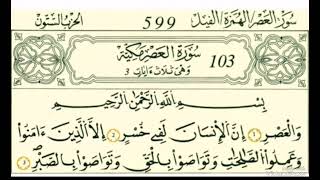 سُوَرُ العَصْرِ الهُمَزَةِ الفِيل 599 الحِزْبُ السِّتُّونَ
سُورَةُ الْعَصْرِ مَكِّيَّة 103
وَهْيَ ثَلَاثُ ءَايَاتٍ 3
بِسْمِ اللَّهِ الرَّحْمَٰنِ الرَّحِيمِ
وَالْعَصْرِ 1 إِنَّ الْإِنسَٰنَ لَفِي خُسْرٍ 2 إِلَّا الَّذِينَ ءَامَنُوا
وَعَمِلُوا الصَّٰلِحَٰتِ وَتَوَاصَوْا بِالْحَقِّ وَتَوَاصَوْا بِالصَّبْرِ 3